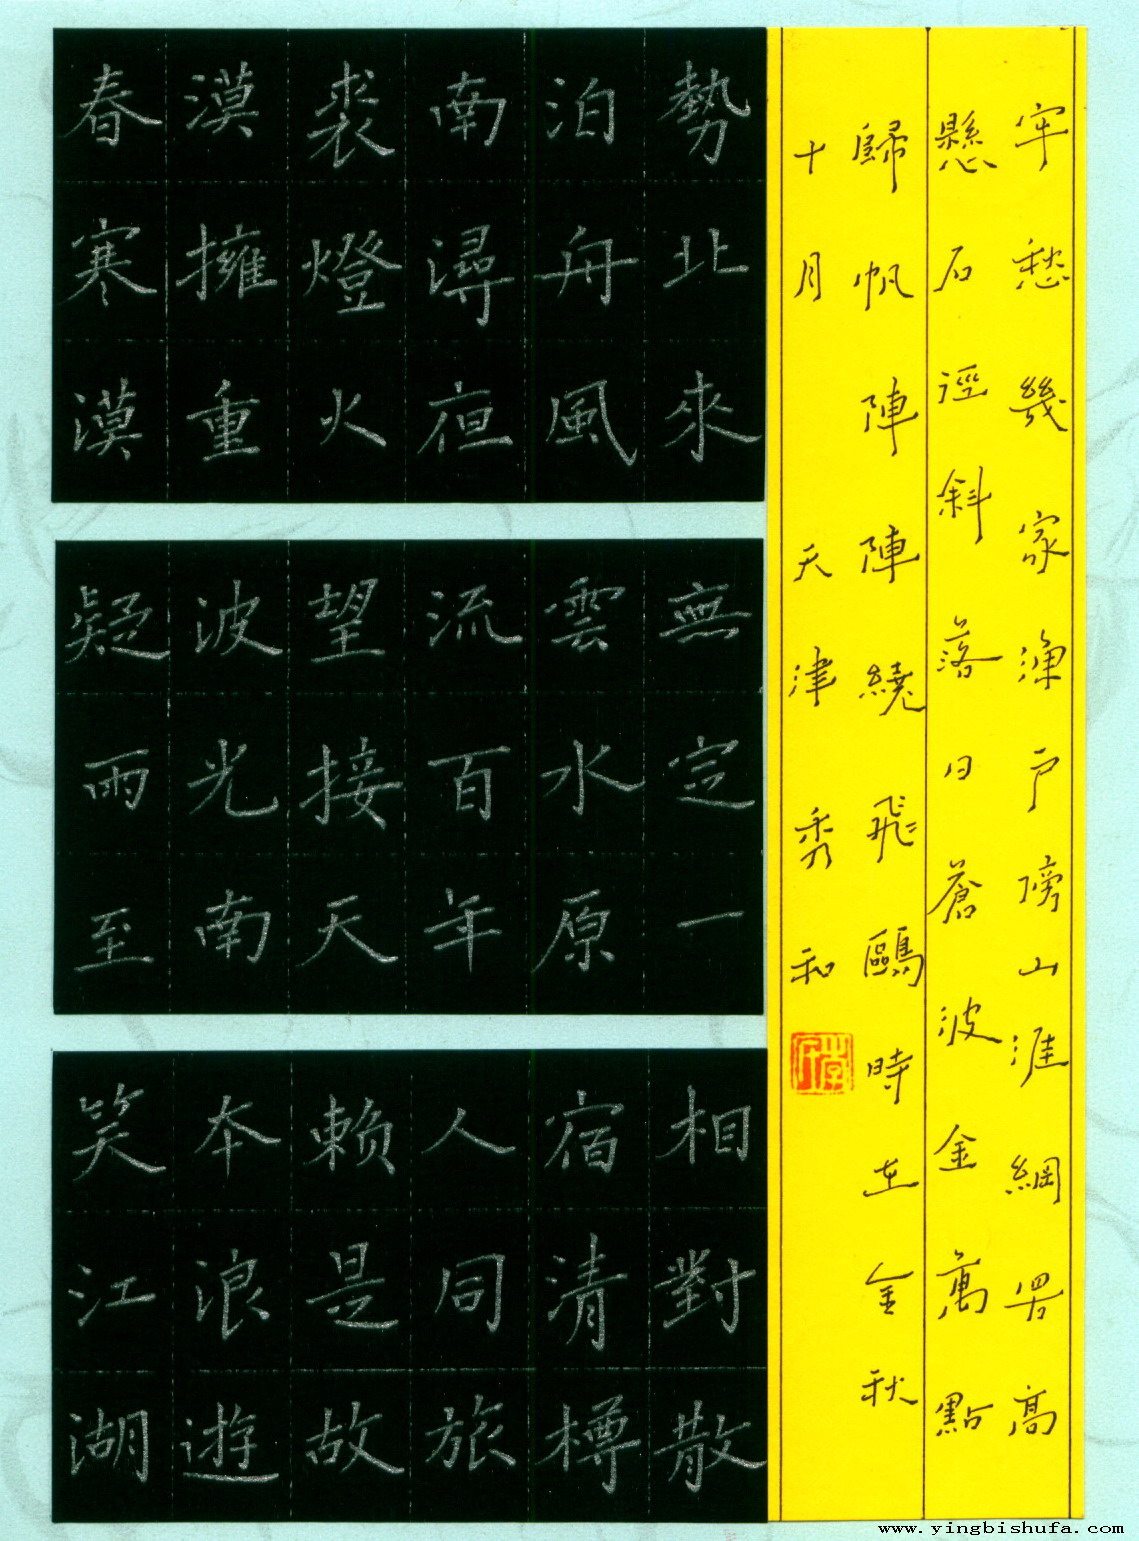 春寒漠
漠擁重
裘燈火
南潯夜
泊舟風
勢北來
疑雨至
波光南
望接天
流百年
雲水原
無定一
笑江湖
本浪遊
賴是故
人同旅
宿清樽
相對散
牢愁幾家漁戶傍山涯網罟高
懸石徑斜落日蒼波金萬點
歸帆陣陣繞飛鷗時在金秋
十月天津秀和
www.yingbishufa.com